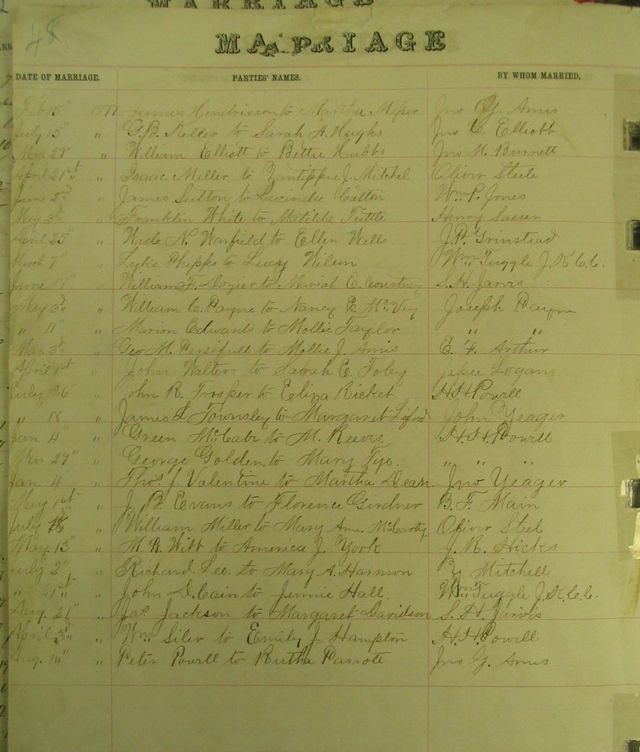 48
MARRIAGE
DATE OF MARRIAGE. PARTIES' NAMES. BY WHOM MARRIED.
Feb 15" 1877 James Hendrickson to Martha Jno G. Amis
July 15" " G. B. Keller to Sarah A. Hughs Jno C. Elliott
Mar 29" " William Elliott to Bettie Hubbs Jno M. Burnett
April 21st " Isaac Miller to Zantippie J. Mitchel Oliver Steele
June 3d " James Sutton to Lucinda Catton Wm P. Jones
May 3d " Franklin White to Matilda Tuttle Henry Sasser
April 25" " N. Warfield to Ellen Wells J. P. Grinstead
March 7" " Phipps to Lucy Wilson Wm Tuggle J. K. C. C.
June 17" " William to Mariah E. S. H. Jarvis
May 3d " William C. Payne to Nancy E. McVey Joseph Payne
" 11 " Marion Edwards to Mollie Taylor " "
Mar 3d " Geo M. Persifull to Mollie J. E. F. Arthur
April 1st " John Walters to Sarah E. Toby Logan
July 26 " John R. Trosper to Eliza Ricket H. H. Powell
" 18 " James L. Townsley to Margaret John Yeager
Jan 4" " Green McCabe to M. Reeves H. H. Powell
Mar 29" " George Golden to Mary Tye. " " "
Jan. 4 " Thos J. Valentine to Martha Dean Jno Yeager
May 1st " J. B. Evans to Florence Girdner B. F. Main
July 18 " William Miller to Mary Ann McCarty Oliver Steel
May 13" " M. B. Witt to America J. York J. R. Hicks
July 2" " Richard Lee to Mary A. Harmon Mitchell
" " John D. Cain to Jennie Hall Wm Tuggle J. K. C. C.
Aug. 21" " Jas Jackson to Margaret Davidson S. H. Jarvis
April 3d " Wm Siler to Emily J. Hampton H. H. Powell
Aug. 14" " Peter Powell to Rutha Parrote Jno G. Amis